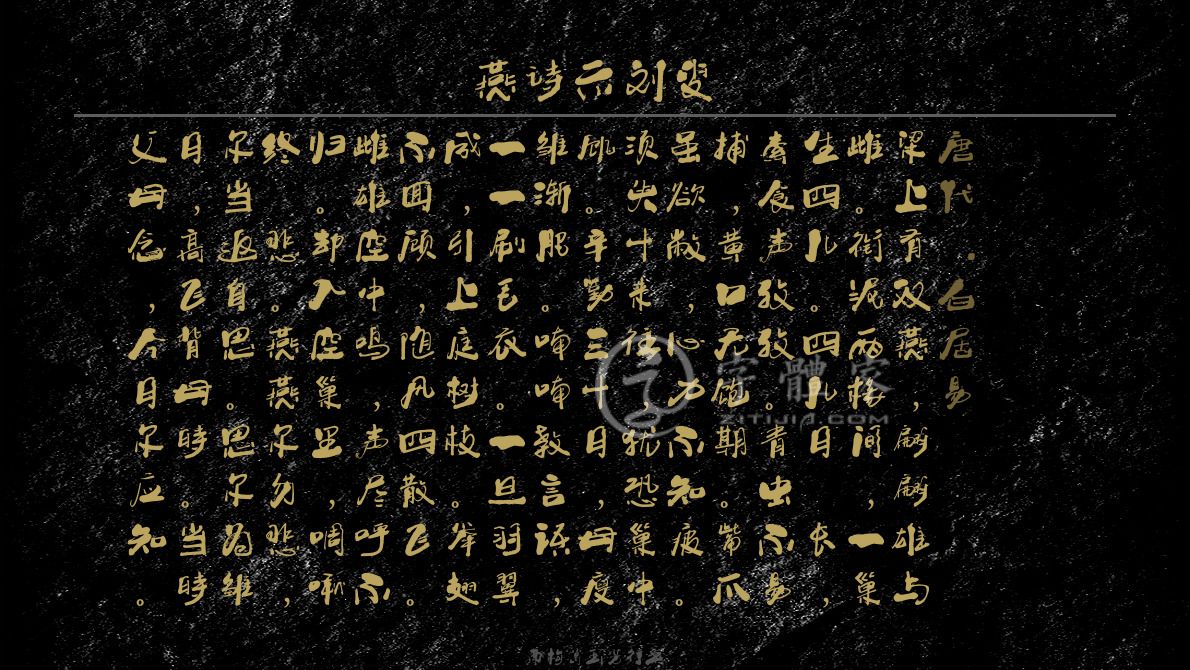 燕诗示刘叟
唐代.白居易
梁上有双燕,翩翩雄与
雌。衔泥两椽间,一巢
生四儿。四儿日长,
索食声孜孜。青虫不易
捕,黄口无饱期。觜爪
虽欲敝,心力不知疲。
须臾十来往,犹恐巢中
饥。辛勤三十日,母瘦
雏渐肥。喃喃教言语,
一一刷毛衣。一旦羽翼
成,引上庭树枝。举翅
不回顾,随风四散飞。
雌雄空中鸣,声尽呼不
归。却入空巢里,啁啾
终悲。燕燕尔勿悲,
尔当返自思。思尔为雏
日,高飞背母时。当时
父母念,今日尔应知。
字體家
ZITIJIA.COM